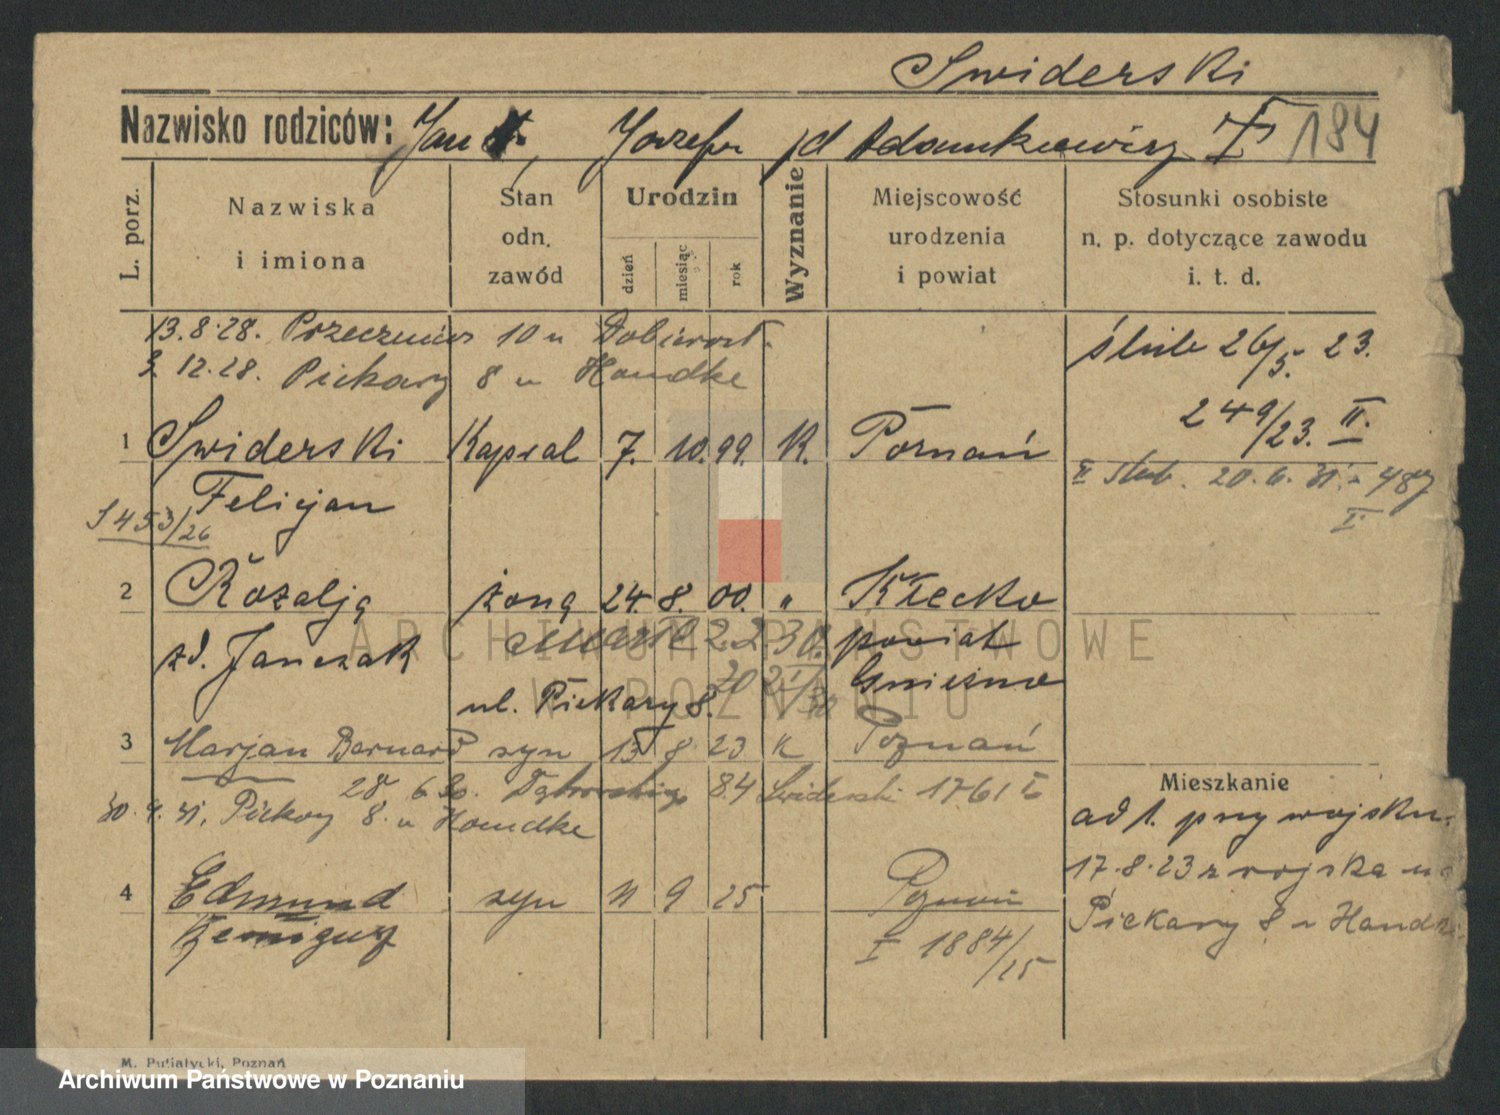 Swiderski
Nazwisko rodziców: Jan, Józefa zd Adamkiewicz I 184
L. porz.
Nazwiska
i imiona
Stan
odn.
zawód
Urodzin
dzień
miesiąc
rok
Wyznanie
Miejscowość
urodzenia
i powiat
Stosunki osobiste
n. p. dotyczące zawodu
i. t. d.
13.8.28. 10 u
3.12.28. Piekary 8 u Handke
ślub 26/5. 23.
249/23. II.
1 Swiderski Kapral 7. 10. 99. K. Poznań
Felicjan
II ślub. 20. 6. 31. 487
I.
S 453/26
2 Rozalja żona 24. 8. 00. " Kłecko
zd. Janczak zmarła 2. 2. 30. powiat
Gniezno
ul. Piekary 8.
3 Marjan Bernard syn 13 8 23 K Poznań
28 6 30. Dąbrowskiego 84 Swiderski 1761 I
30. 9. 31. Piekary 8. u Handke
4 Edmund syn 11 9 25 Poznań
Remigusz
I 1884/25
Mieszkanie
ad 1. przy wojsku.
17.8.23 z wojska na
Piekary 8 u Handke
M. Putiatycki, Poznań
ARCHIWUM PAŃSTWOWE
W POZNANIU
Archiwum Państwowe w Poznaniu